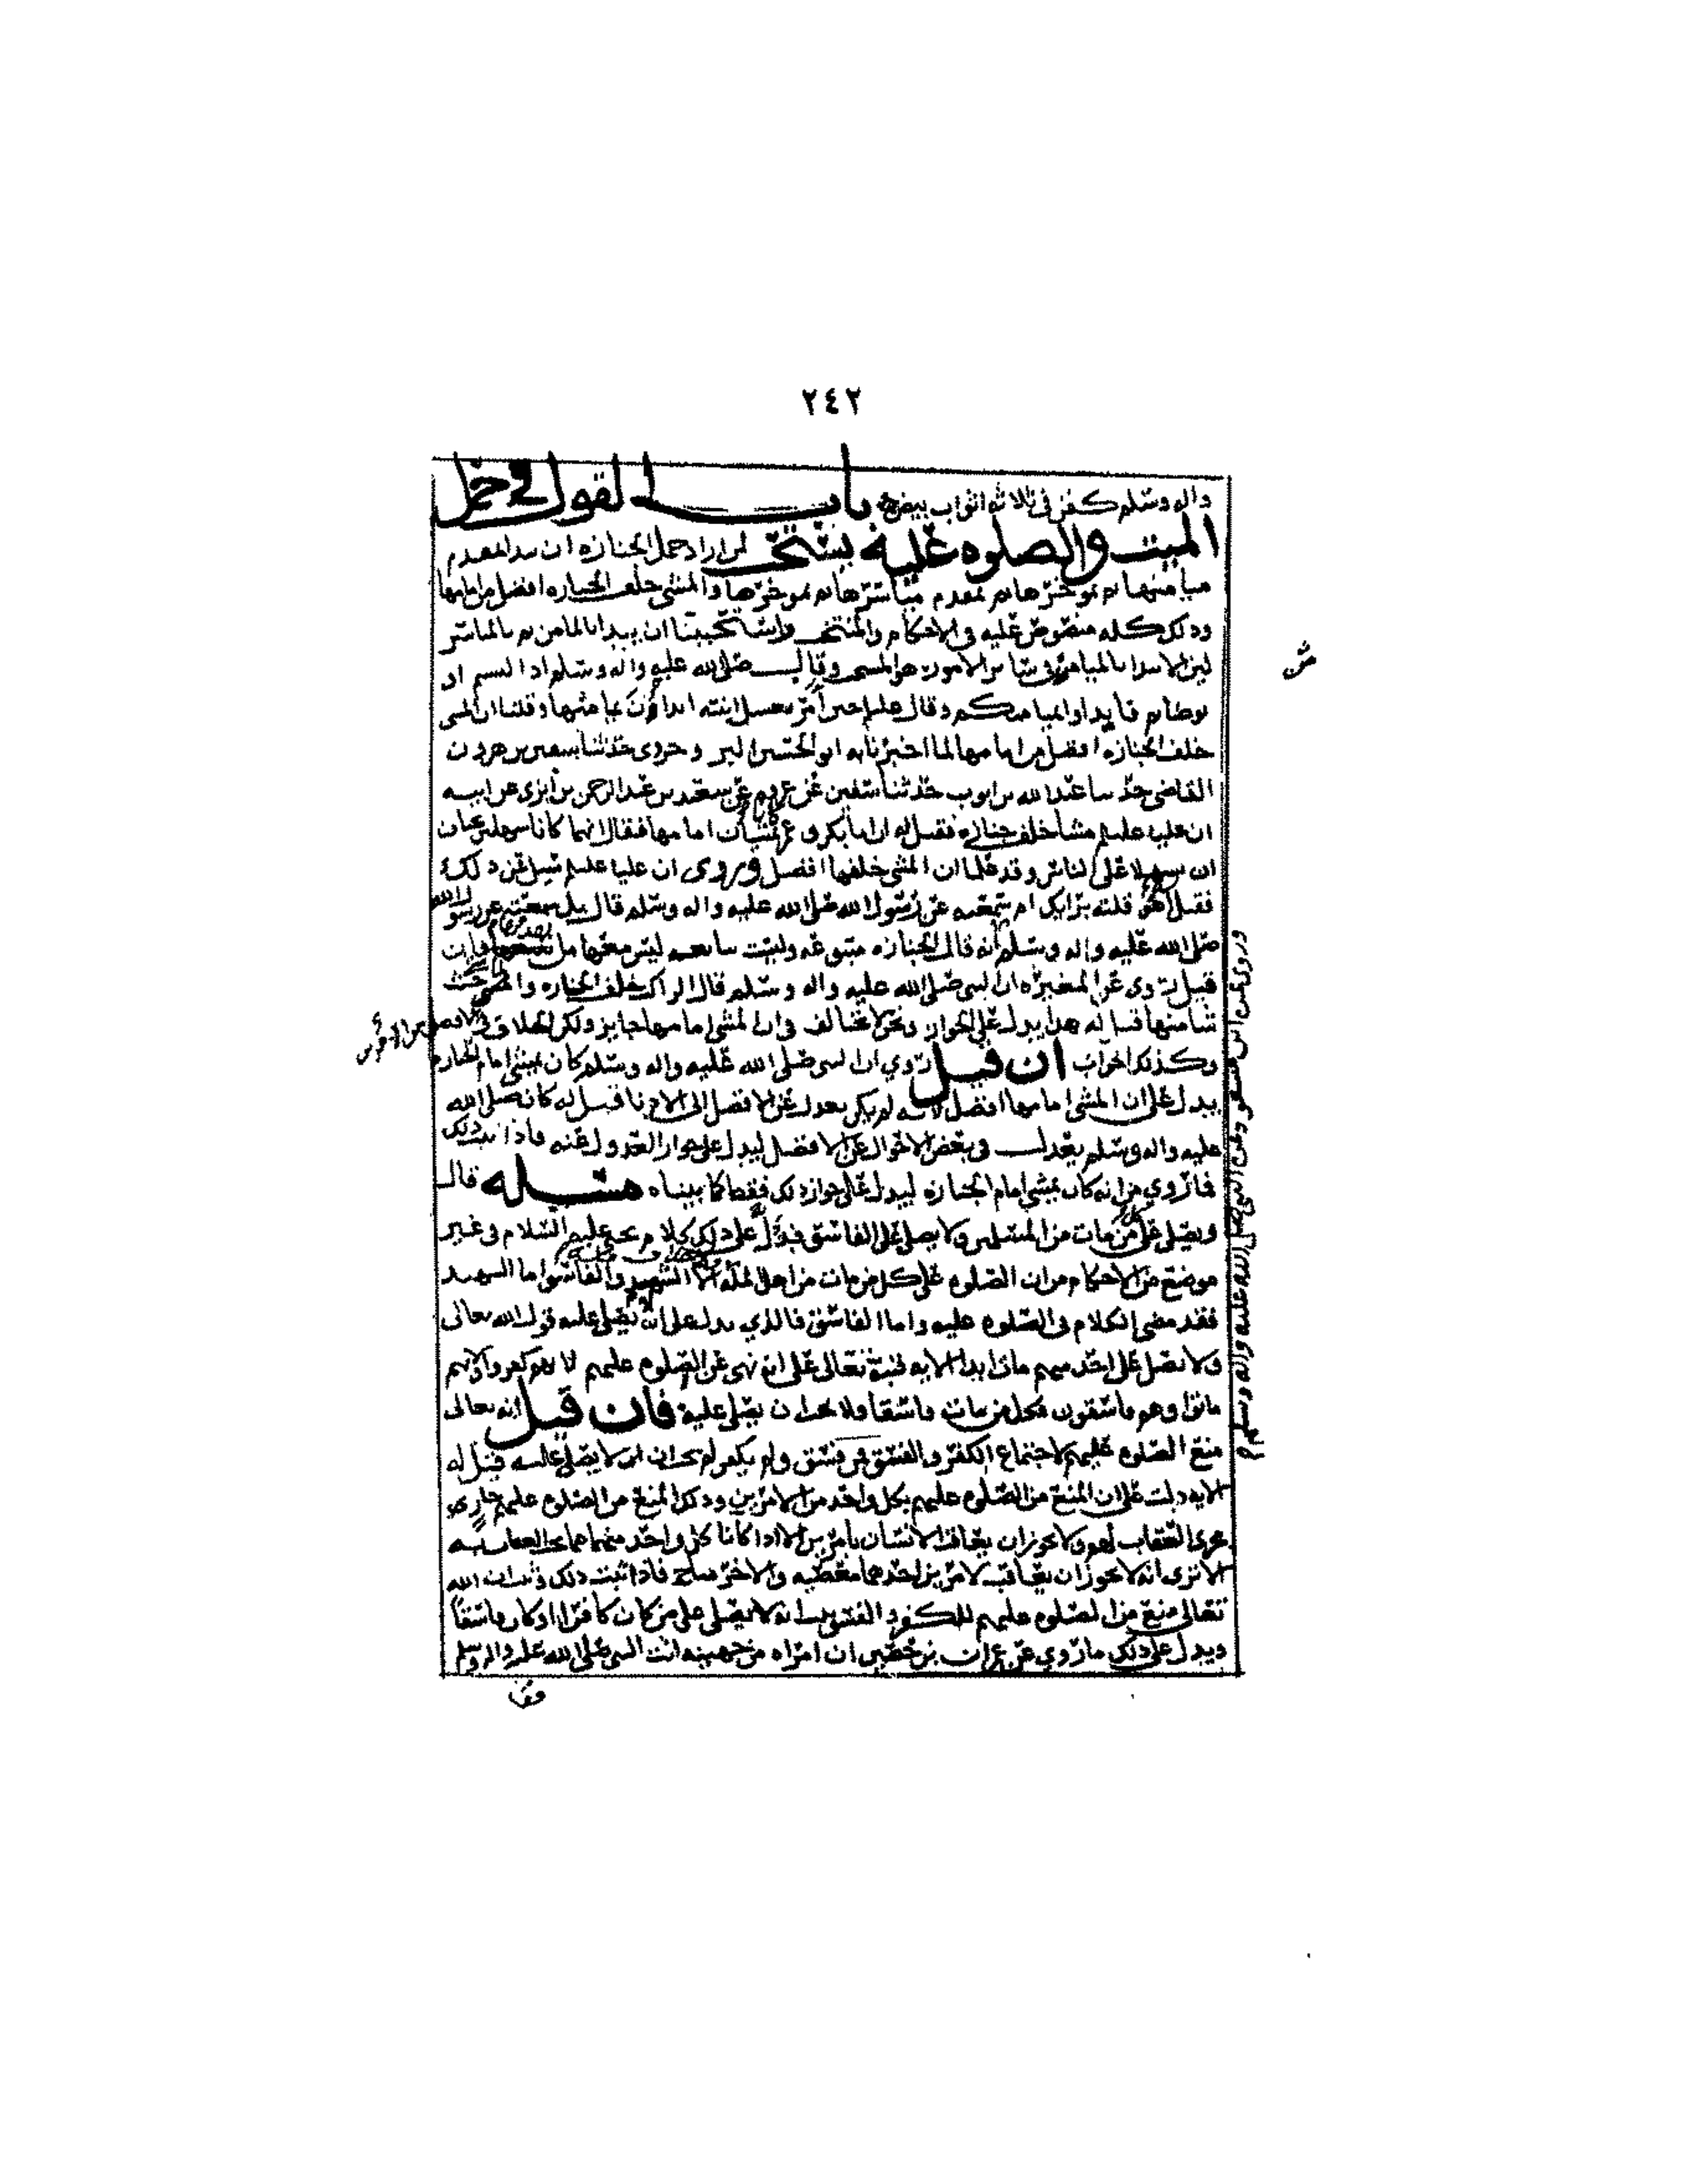 ٢٤٢
واله وسلم كفن في ثلاثه اثواب بيض باب القول في حمل
الميت والصلوه عليه يستحب لمن اراد حمل الجنازه ان يبدا بمقدم
ميامنها ثم بموخرها ثم بمقدم مياسرها ثم بموخرها والمشي خلف الجنازه افضل من امامها
وذلك كله منصوص عليه في الاحكام والمنتخب واستحببنا ان يبدا بالميامن ثم بالمياسر
لان الابتدا بالميامن في ساير الامور هو المستحب وقال صلى الله عليه واله وسلم اذا لبستم او
توضاتم فابداوا بميامنكم وقال عليلم حين امر بغسل ابنته ابدان بميامنها وقلنا ان المشي
خلف الجنازه افضل من امامها لما اخبرنا به ابو الحسين البروجردي حدثنا سفين بن هرون
القاضي حدثنا عبدالله بن ايوب حدثنا سفين عن عروه عن سعيد بن عبدالرحمن بن ابزى عن ابيه
ان عليا عليلم مشا خلف جنازه فقيل له ان ابا بكر وعمر يمشيان امامها فقال انهما كانا سهلين يحبان
ان يسهلا على الناس وقد علما ان المشي خلفها افضل وروي ان عليا عليلم سيل عن ذلك
فقيل اهو قلته برايك ام سمعته عن رسول الله صلى الله عليه واله وسلم قال بل سمعته عن رسول الله
صلى الله عليه واله وسلم انه قال الجنازه متبوعه وليست تابعه ليس معها من فان
قيل روي عن المغيره ان النبي صلى الله عليه واله وسلم قال الراكب خلف الجنازه والماشي حيث
شا منها قيل له هذا يدل على الجواز ونحن لا نخالف في ان المشي امامها جايز ولكن الخلاف في الافضل
وكذلك الجواب ان قيل روي ان النبي صلى الله عليه واله وسلم كان يمشي امام الجنازه
يدل على ان المشي امامها افضل لانه لم يكن يعدل عن الافضل الى الادنا قيل له كان صلى الله
عليه واله وسلم يعدل في بعض الاحوال عن الافضل ليدل على جواز العدول عنه فاذا ثبت ذلك
فما روي من انه كان يمشي امام الجنازه ليدل على جواز ذلك فقط كما بيناه مسله قال
ويصلى على كل من مات من المسلمين ولا يصلى على الفاسق قد دل على ذلك كلام يحيى عليه السلام في غير
موضع من الاحكام من ان الصلوه على كل من مات من اهل المله الا الشهيد والفاسق اما الشهيد
فقد مضى الكلام في الصلوه عليه واما الفاسق فالذي يدل على انه لا يصلى عليه قول الله تعالى
ولا تصل على احد منهم مات ابدا الايه فنبه تعالى على انه نهى عن الصلوه عليهم لانهم كفروا ولانهم
ماتوا وهم فاسقون فكل من مات فاسقا فلا يجب ان يصلى عليه فان قيل انه تعالى
منع الصلوه عليهم لاجتماع الكفر والفسق فمن فسق ولم يكفر لم يجب ان لا يصلى عليه قيل له
الايه دلت على ان المنع من الصلوه عليهم بكل واحد من الامرين وذلك المنع من الصلوه عليهم جاري
مجرى العقاب لهم ولا يجوز ان يعاقب الانسان بامرين الا اذا كانا كل واحد منهما مما يجب العقاب به
الا ترى انه لا يجوز ان يعاقب لامرين احدهما معصيه والاخر مباح فاذا ثبت ذلك وثبت ان الله
تعالى منع من الصلوه عليهم للكفر والفسق ثبت انه لا يصلى على من كان كافرا او كان فاسقا
ويدل على ذلك ما روي عن عمران بن حصين ان امراه من جهينه اتت النبي صلى الله عليه واله وسلم